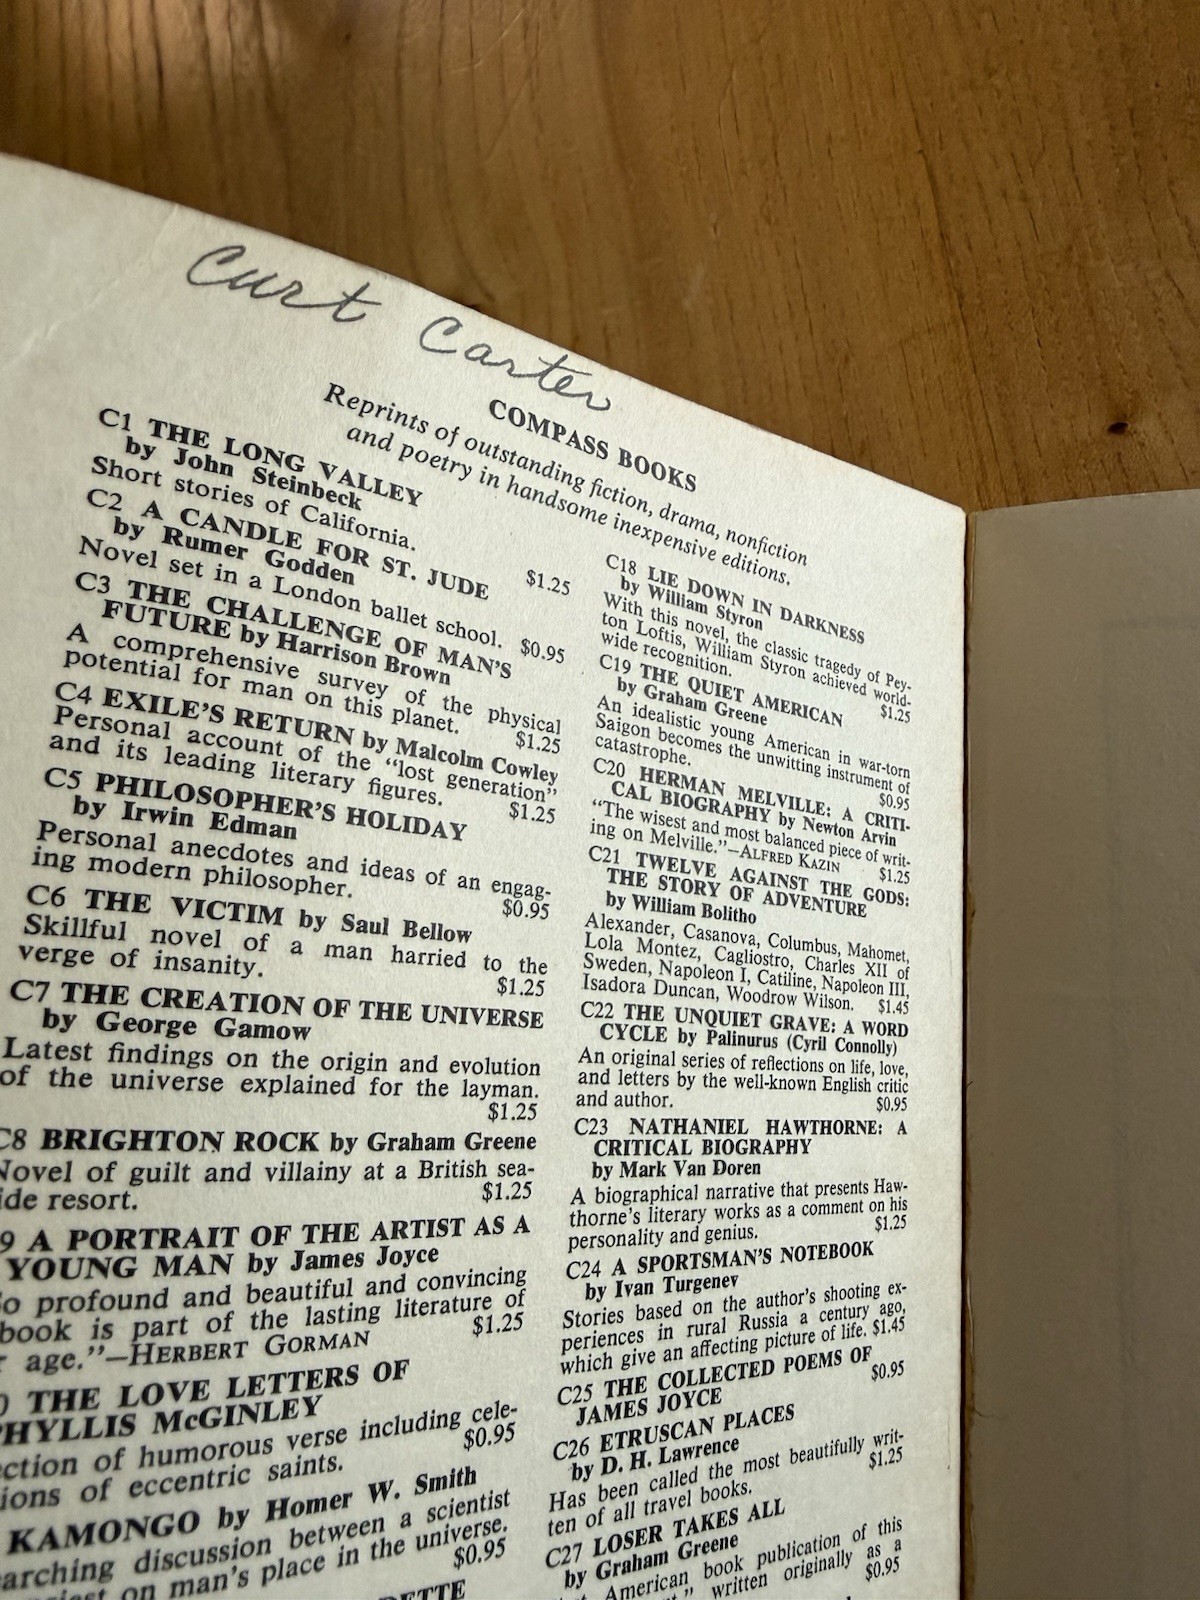 Curt Carter
COMPASS BOOKS
Reprints of outstanding fiction, drama, nonfiction
and poetry in handsome inexpensive editions.
C1 THE LONG VALLEY
by John Steinbeck
Short stories of California.
$1.25
C2 A CANDLE FOR ST. JUDE
by Rumer Godden
Novel set in a London ballet school. $0.95
C3 THE CHALLENGE OF MAN'S
FUTURE by Harrison Brown
A comprehensive survey of the physical
potential for man on this planet. $1.25
C4 EXILE'S RETURN by Malcolm Cowley
Personal account of the "lost generation"
and its leading literary figures. $1.25
C5 PHILOSOPHER'S HOLIDAY
by Irwin Edman
Personal anecdotes and ideas of an engag-
ing modern philosopher. $0.95
C6 THE VICTIM by Saul Bellow
Skillful novel of a man harried to the
verge of insanity. $1.25
C7 THE CREATION OF THE UNIVERSE
by George Gamow
Latest findings on the origin and evolution
of the universe explained for the layman.
$1.25
C8 BRIGHTON ROCK by Graham Greene
Novel of guilt and villainy at a British sea-
ide resort. $1.25
9 A PORTRAIT OF THE ARTIST AS A
YOUNG MAN by James Joyce
So profound and beautiful and convincing
book is part of the lasting literature of
r age."—HERBERT GORMAN $1.25
0 THE LOVE LETTERS OF
PHYLLIS McGINLEY
ection of humorous verse including cele-
ions of eccentric saints. $0.95
KAMONGO by Homer W. Smith
arching discussion between a scientist
on man's place in the universe.
$0.95
C18 LIE DOWN IN DARKNESS
by William Styron
With this novel, the classic tragedy of Pey-
ton Loftis, William Styron achieved world-
wide recognition. $1.25
C19 THE QUIET AMERICAN
by Graham Greene
An idealistic young American in war-torn
Saigon becomes the unwitting instrument of
catastrophe. $0.95
C20 HERMAN MELVILLE: A CRITI-
CAL BIOGRAPHY by Newton Arvin
"The wisest and most balanced piece of writ-
ing on Melville."—ALFRED KAZIN $1.25
C21 TWELVE AGAINST THE GODS:
THE STORY OF ADVENTURE
by William Bolitho
Alexander, Casanova, Columbus, Mahomet,
Lola Montez, Cagliostro, Charles XII of
Sweden, Napoleon I, Catiline, Napoleon III,
Isadora Duncan, Woodrow Wilson. $1.45
C22 THE UNQUIET GRAVE: A WORD
CYCLE by Palinurus (Cyril Connolly)
An original series of reflections on life, love,
and letters by the well-known English critic
and author. $0.95
C23 NATHANIEL HAWTHORNE: A
CRITICAL BIOGRAPHY
by Mark Van Doren
A biographical narrative that presents Haw-
thorne's literary works as a comment on his
personality and genius. $1.25
C24 A SPORTSMAN'S NOTEBOOK
by Ivan Turgenev
Stories based on the author's shooting ex-
periences in rural Russia a century ago,
which give an affecting picture of life. $1.45
C25 THE COLLECTED POEMS OF
JAMES JOYCE $0.95
C26 ETRUSCAN PLACES
by D. H. Lawrence
Has been called the most beautifully writ-
ten of all travel books. $1.25
C27 LOSER TAKES ALL
by Graham Greene
American book publication of this
written originally as a
$0.95